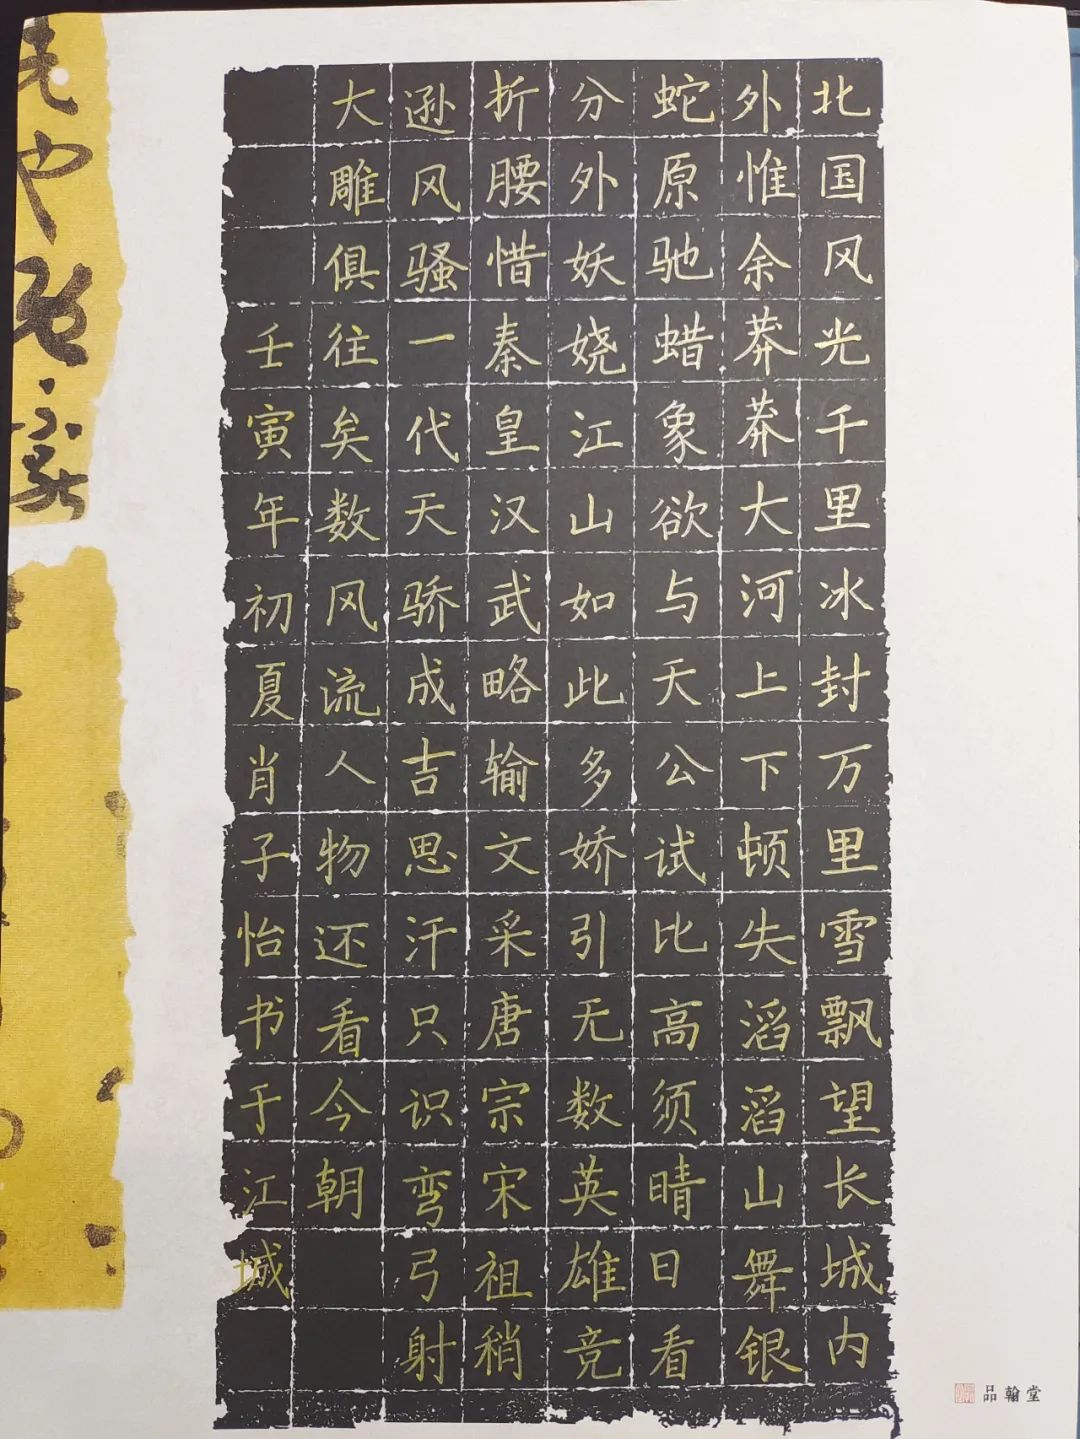 北国风光千里冰封万里雪飘望长城内
外惟余莽莽大河上下顿失滔滔山舞银
蛇原驰蜡象欲与天公试比高须晴日看
分外妖娆江山如此多娇引无数英雄竞
折腰惜秦皇汉武略输文采唐宗宋祖稍
逊风骚一代天骄成吉思汗只识弯弓射
大雕俱往矣数风流人物还看今朝
壬寅年初夏肖子怡书于江城
品翰堂